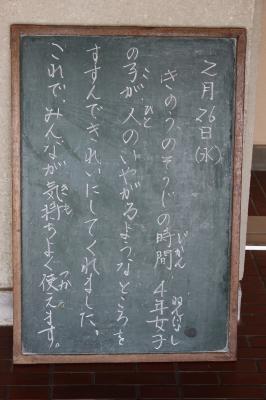 2月26日(水)
きのうのそうじの時間、4年女子
の子が、人のいやがるようなところを
すすんできれいにしてくれました。
これで、みんなが気持ちよく使えます。